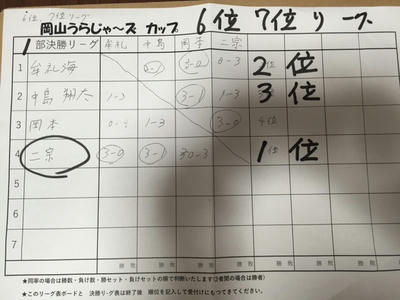 6位、7位リーグ
岡山うらじゃ～ズ カップ 6位 7位 リーグ
1部決勝リーグ 牟礼 中島 岡本 二宗
1 牟礼海 3-1 3-0 0-3 2位
2 中島 翔太 1-3 3-1 1-3 3位
3 岡本 1-3 4位
4 二宗 3-0 3-1 1位
5
6
7
勝 敗 勝 敗 勝 敗 勝 敗 勝 敗 勝 敗 勝 敗
★同率の場合は勝数・負け数・勝セット・負けセットの順で判断いたします(3者間の場合は勝者)
★このリーグ表ボードと 決勝リーグ表は終了後 順位を記入して受付けにもってきてください。